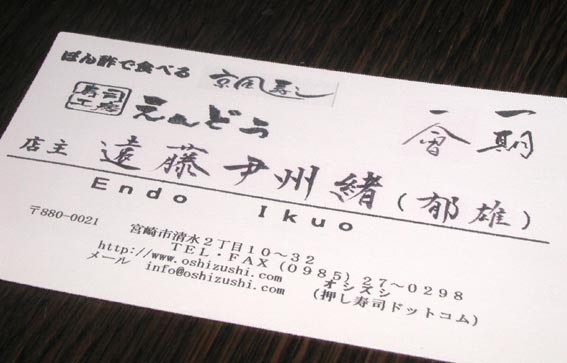 ぽん酢で食べる 京風寿し
寿司工房 えんどう
一期
一會
店主 遠藤尹州緒(郁雄)
Endo Ikuo
〒880-0021
宮崎市清水2丁目10~32
TEL・FAX(0985)27~0298
http://www.oshizushi.com オシズシ
メール info@oshizushi.com (押し寿司ドットコム)